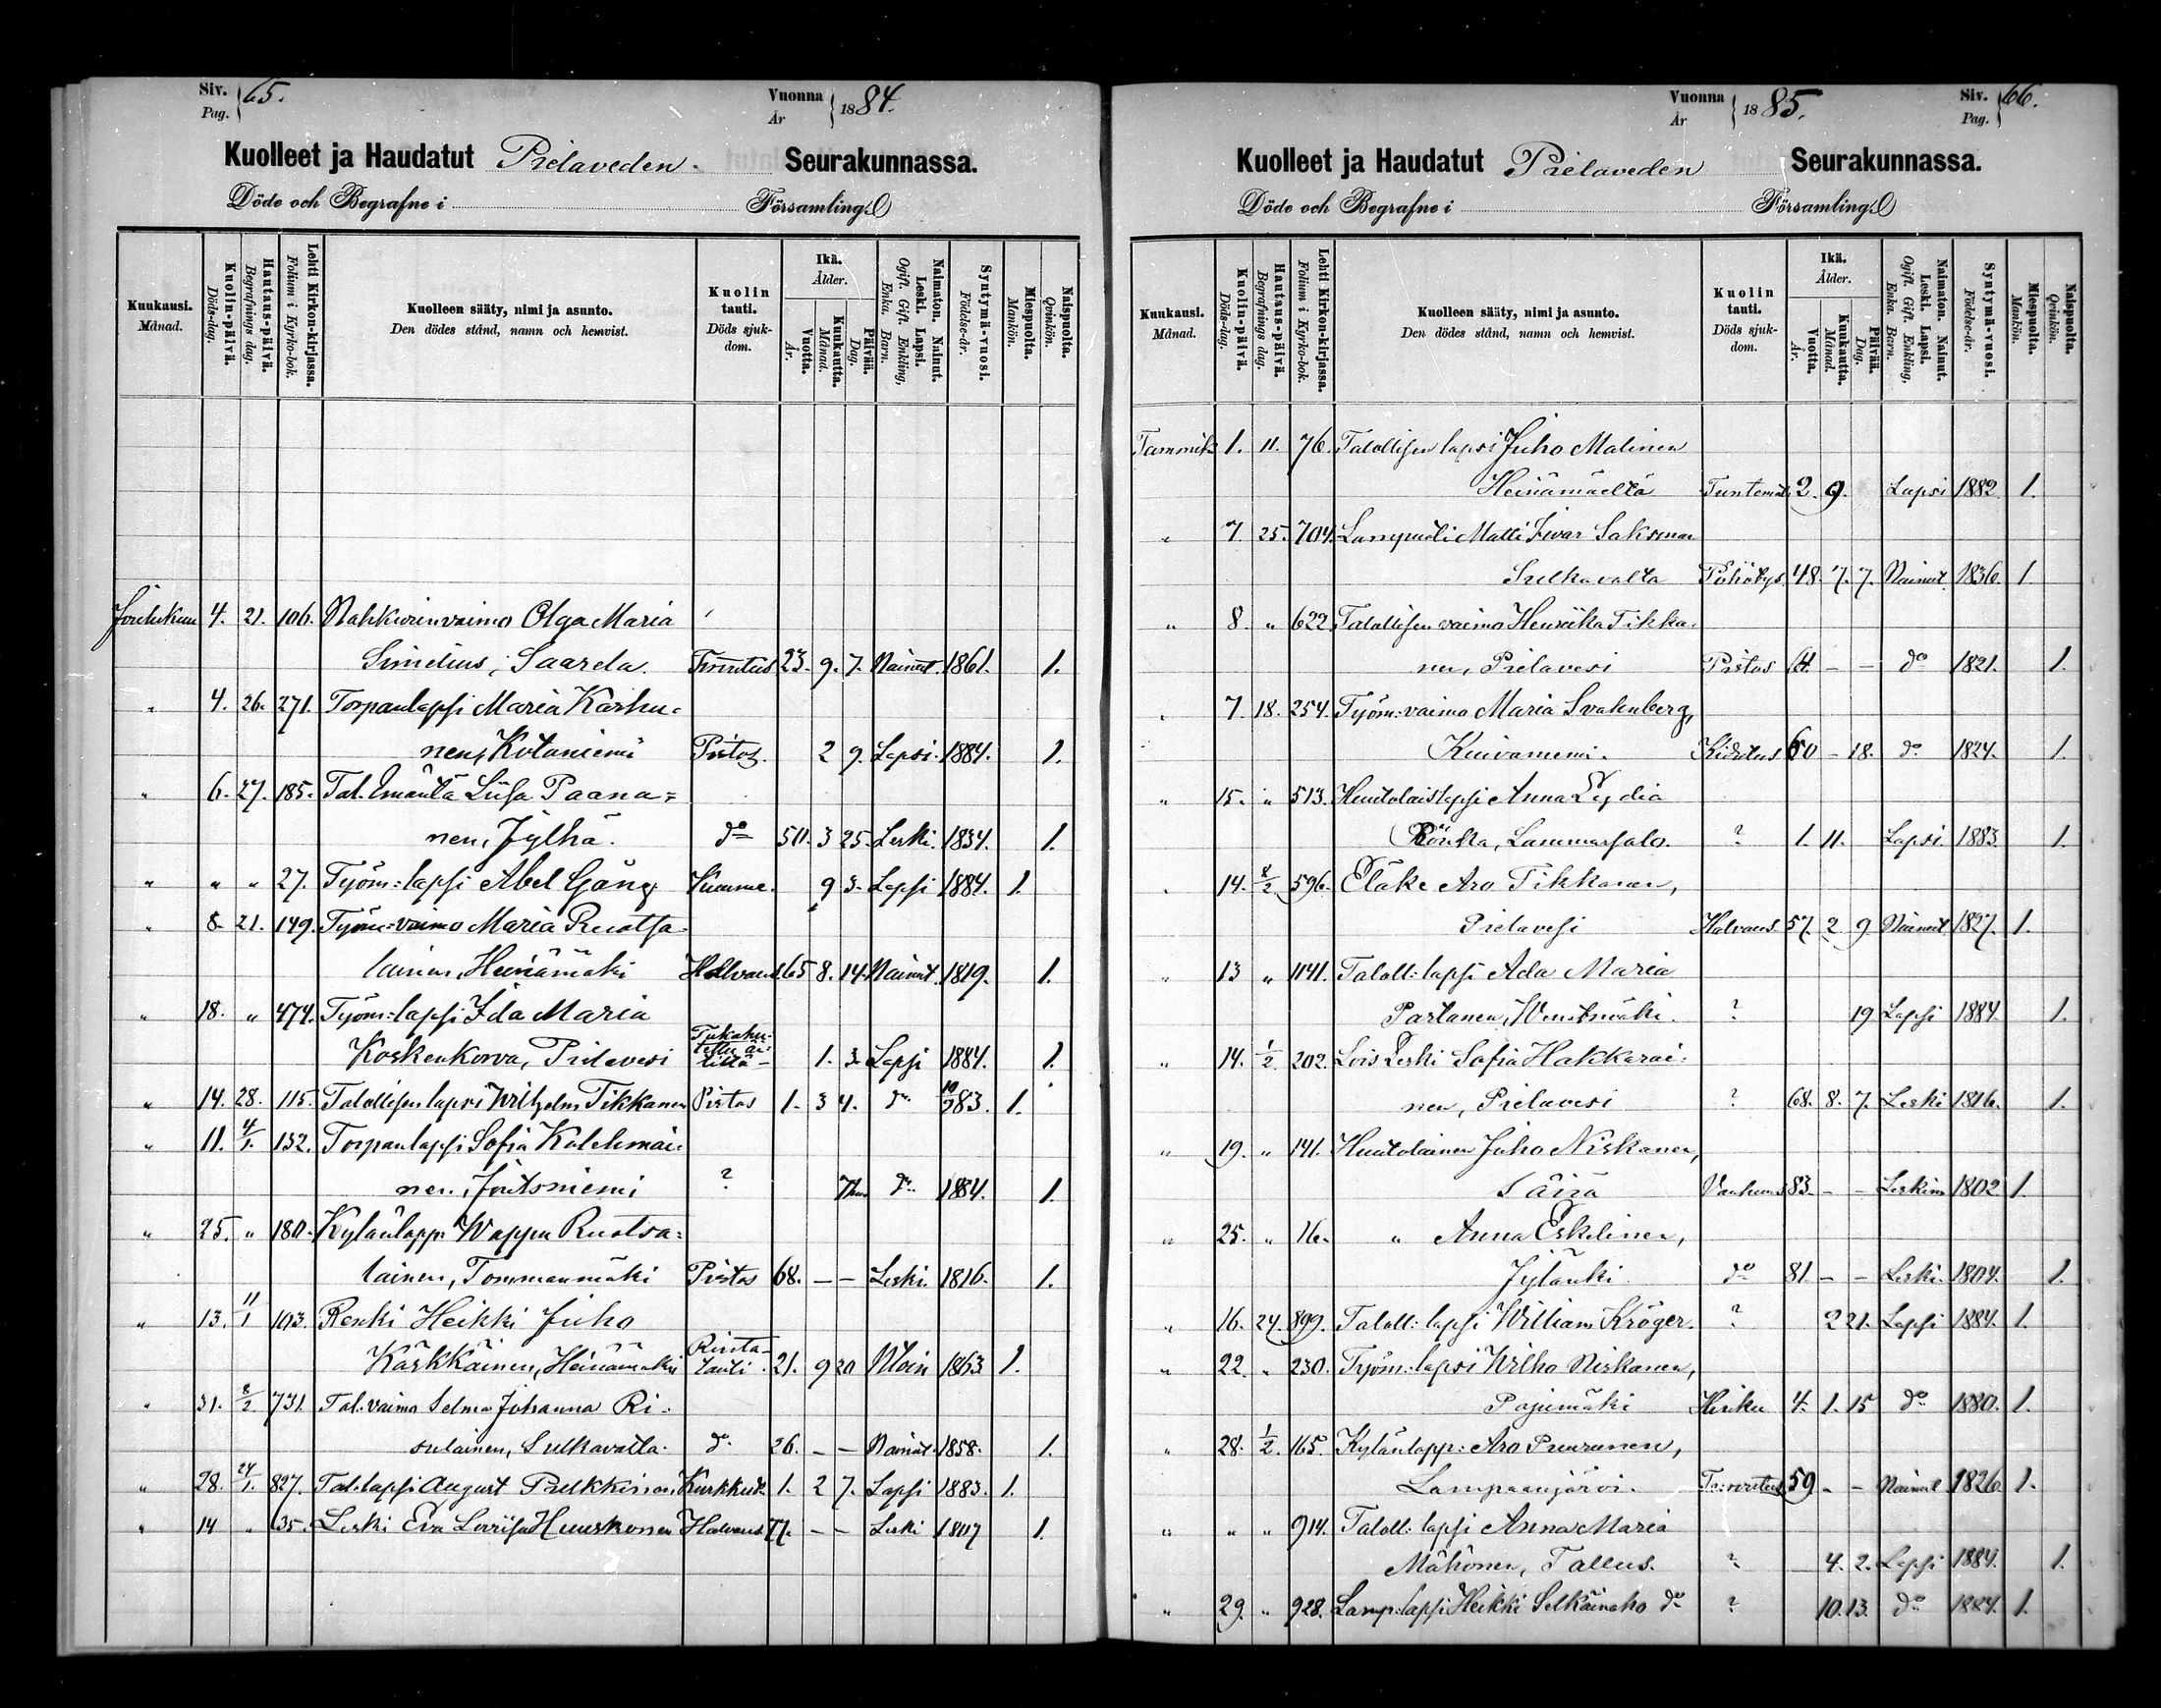 Siv. Pag. 65. Vuonna År 1884.
Kuolleet ja Haudatut Pielaveden. Seurakunnassa.
Döde och Begrafne i Församling.
Kuukausi. Månad. Kuolin-päivä. Döds-dag. Hautaus-päivä. Begrafnings dag. Lehti Kirkon-kirjassa. Folium i Kyrko-bok. Kuolleen sääty, nimi ja asunto. Den dödes stånd, namn och hemvist. Kuolin tauti. Döds sjuk-dom. Ikä. Ålder. Vuotta. År. Kuukautta. Månad. Päivää. Dag. Naimaton. Nainut. Leski. Lapsi. Ogift. Gift. Enkling, Enka. Barn. Syntymä-vuosi. Födelse-år. Miespuolta. Mankön. Naispuolta. Qvinkön.
Joulukuu 4. 21. 106. Nahkurin vaimo Olga Maria
Sinelius, Saarela. 23. 9. 7. Nainut. 1861. 1.
" 4. 26. 271. Torpanlapsi Maria Karhu-
nen, Kotaniemi Pistos. 2 9. Lapsi. 1884. 1.
" 6. 27. 185. Tal. Emäntä Liisa Paana=
nen, Jylhä. do 50. 3 25. Leski. 1834. 1.
" " " 27. Työm:lapsi Abel Gäng. Kuume. 9 3. Lapsi 1884. 1.
" 8. 21. 149. Työm:vaimo Maria Ruotsa-
lainen, Heinämäki Halvaus. 65 8. 14. Nainut. 1819. 1.
" 18. " 474. Työm:lapsi Ida Maria
Koskenkorva, Pielavesi Tukahutettu äitiltä 1. 3. Lapsi 1884. 1.
" 14. 28. 115. Talollisen lapsi Wilhelm Tikkanen Pistos 1. 3 4. do 10/9 83. 1.
" 11. 4/1. 132. Torpanlapsi Sofia Kolehmai-
nen, Joutsniemi ? do 1884. 1.
" 25. " 180. Kylänlapp: Wappu Ruotsa=
lainen, Tommanmäki Pistos 68. — — Leski. 1816. 1.
" 13. 11/1 103. Renki Heikki Juho
Kärkkäinen, Heinämäki Rinta-tauti. 21. 9 20 Noin 1863 1.
" 31. 8/2 731. Tal. vaimo Selma Johanna Ri-
sulainen, Sulkavalta. do 26. — — Nainut. 1858. 1.
" 28. 24/1. 827. Tal:lapsi August Pulkkinen Kurkkut. 1. 2 7. Lapsi 1883. 1.
" 14 " 35. Leski Eva Lovisa Huuskonen Halvaus 77. — — Leski 1807 1.
Vuonna År 1885. Siv. Pag. 66.
Kuolleet ja Haudatut Pielaveden Seurakunnassa.
Döde och Begrafne i Församling.
Kuukausi. Månad. Kuolin-päivä. Döds-dag. Hautaus-päivä. Begrafnings dag. Lehti Kirkon-kirjassa. Folium i Kyrko-bok. Kuolleen sääty, nimi ja asunto. Den dödes stånd, namn och hemvist. Kuolin tauti. Döds sjuk-dom. Ikä. Ålder. Vuotta. År. Kuukautta. Månad. Päivää. Dag. Naimaton. Nainut. Leski. Lapsi. Ogift. Gift. Enkling, Enka. Barn. Syntymä-vuosi. Födelse-år. Miespuolta. Mankön. Naispuolta. Qvinkön.
Tammik. 1. 11. 76. Talollisen lapsi Juho Malinen
Heinämäeltä Tuntemat. 2. 9. Lapsi 1882 1.
" 7. 25. 704. Lampuoti Matti Iivar Saksman
Sulkavalta Pöhötys. 48. 7. 7. Nainut. 1836. 1.
" 8. " 622. Talollisen vaimo Henriikka Tikka-
nen, Pielavesi Pistos 64. — — do 1821. 1.
" 7. 18. 254. Työm:vaimo Maria Svahnberg,
Kuivaniemi. Kidutus 60 — 18. do. 1824. 1.
" 15. " 513. Huutolaislapsi Anna Lydia
Rönkä, Lammassalo. ? 1. 11. Lapsi. 1883. 1.
" 14. 8/2 596. Eläke Aro Tikkanen,
Pielavesi Halvaus. 57. 2. 9 Nainut. 1827. 1.
" 13 " 1141. Taloll:lapsi Ada Maria
Partanen, Wentmäki. ? 19 Lapsi 1884. 1.
" 14. 1/2 202. Lois Leski Sofia Hakkarai-
nen, Pielavesi ? 68. 8. 7. Leski 1816. 1.
" 19. " 141. Huutolainen Juho Niskanen,
Säirä Vanhuus 83. — — Leskim 1802 1.
" 25. " 16. " Anna Eskelinen,
Jylänki do 81 — — Leski. 1804. 1.
" 16. 24. 899. Taloll:lapsi William Kröger. ? 2 21. Lapsi 1884. 1.
" 22. " 230. Työm:lapsi Wilho Niskanen,
Pajumäki Hinku 4. 1. 15 do 1880. 1.
" 28. 1/2. 165. Kylänlapp: Aro Puurunen,
Lampaanjärvi. 59 — — Nainut 1826. 1.
" " " 914. Taloll:lapsi Anna Maria
Mähönen, Tallus. ? 4. 2. Lapsi 1884. 1.
" 29. " 928. Lamp:lapsi Heikki Selkäinaho do ? 10. 13. do 1884. 1.